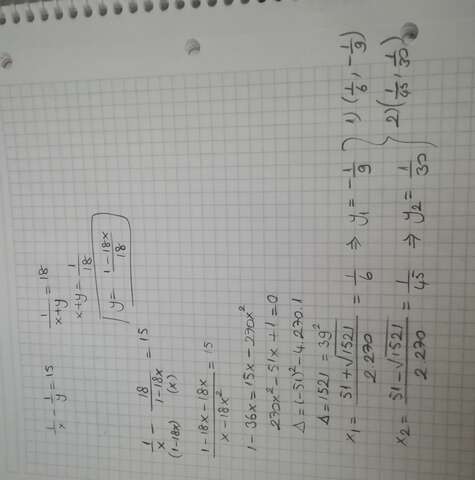 1/x - 1/y = 15    1/(x+y) = 18
x+y = 1/18
y = (1-18x)/18
1/x - 18/(1-18x) = 15
(1-18x) (x)
(1-18x-18x)/(x-18x²) = 15
1-36x = 15x-270x²
270x²-51x+1=0
Δ=(-51)²-4.270.1
Δ=1521 = 39²
x₁ = (51+√1521)/(2 270) = 1/6 ⇒ y₁ = -1/9 } 1) (1/6, -1/9)
x₂ = (51-√1521)/(2 270) = 1/45 ⇒ y₂ = 1/30 } 2) (1/45, 1/30)